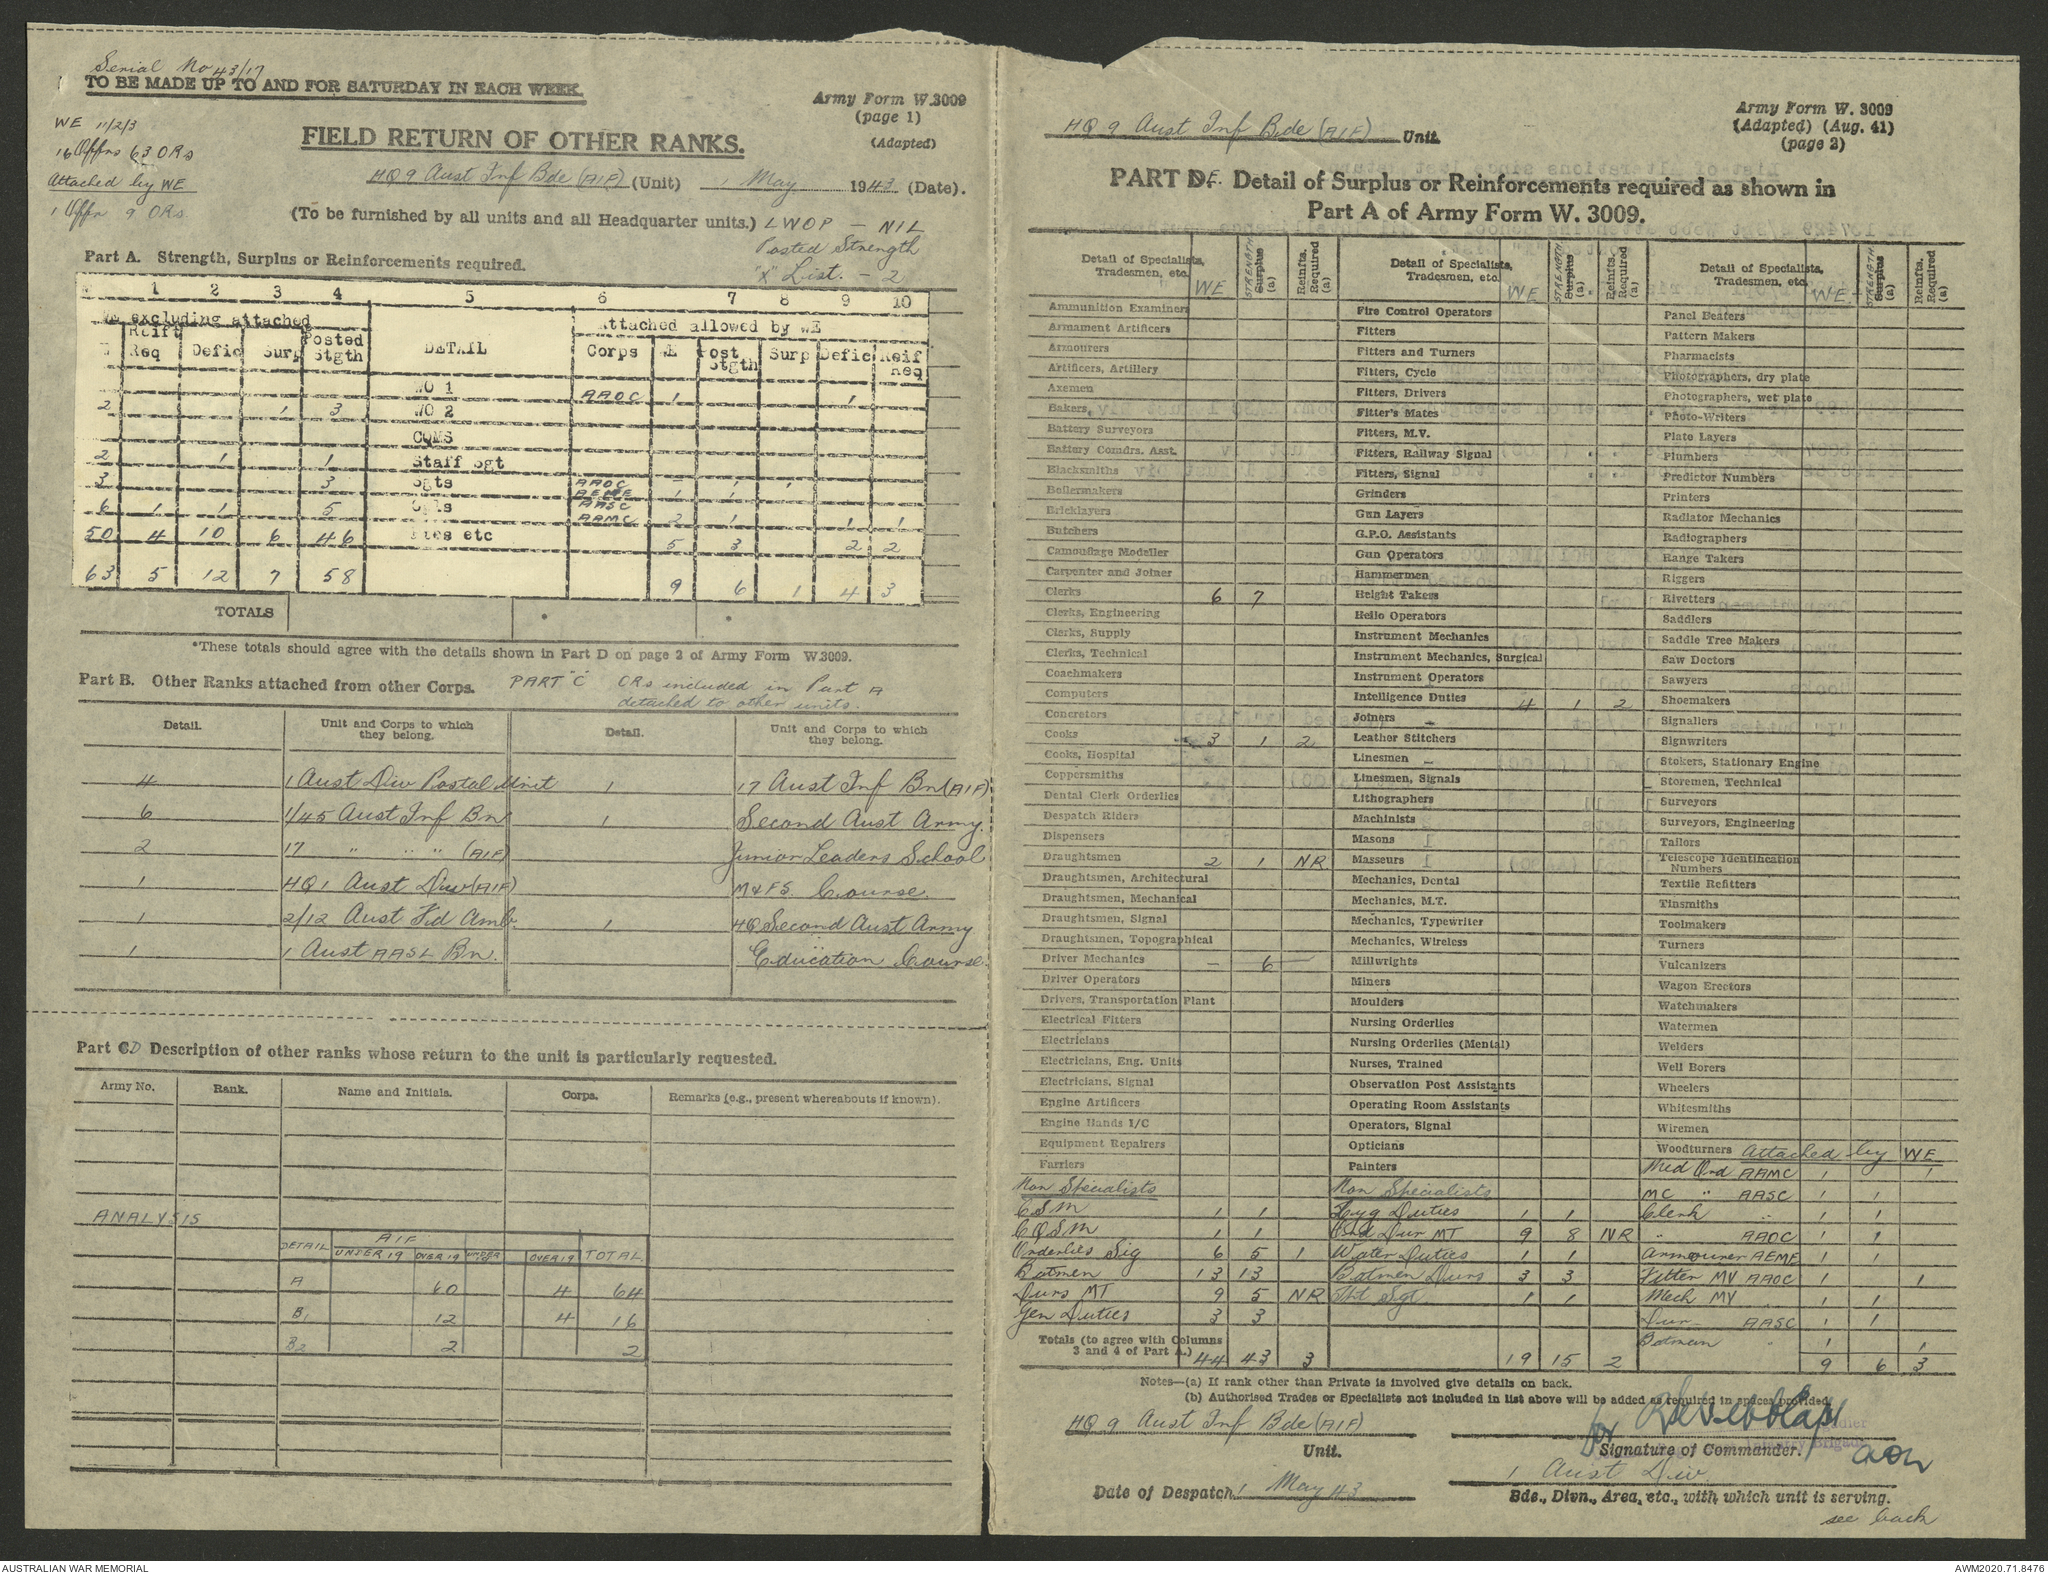 Serial No 43/17
TO BE MADE UP TO AND FOR SATURDAY IN EACH WEEK.
Army Form W.3009
(page 1)
(Adapted)
WE 11/2/3
16 Offrs 63 ORs
Attached by WE
1 Offr 9 ORs
FIELD RETURN OF OTHER RANKS.
HQ 9 Aust Inf Bde (AIF) (Unit) 1 May 1943 (Date).
(To be furnished by all units and all Headquarter units.) LWOP - NIL
Posted Strength
"X" List. - 2
Part A. Strength, Surplus or Reinforcements required.
1 2 3 4 5 6 7 8 9 10
excluding attached
Attached allowed by WE
Reift Req Defic Surp Posted Stgth DETAIL Corps WE Post Stgth Surp Defic Reif Req
WO 1 AAOC 1 1
2 1 3 WO 2
CQMS
2 1 1 Staff Sgt
3 3 Sgts AAOC - 1 1
AEME 1 1
6 1 1 5 Cpls AASC
AAMC 2 1 1 1
50 4 10 6 46 Ptes etc 5 3 2 2
63 5 12 7 58 9 6 1 4 3
TOTALS
*These totals should agree with the details shown in Part D on page 2 of Army Form W.3009.
Part B. Other Ranks attached from other Corps. PART "C" ORs included in Part A
detached to other units.
Detail. Unit and Corps to which they belong. Detail. Unit and Corps to which they belong.
4 1 Aust Div Postal Unit 1 17 Aust Inf Bn (AIF)
6 1/45 Aust Inf Bn 1 Second Aust Army.
2 17 " " " (AIF) Junior Leaders School
1 HQ 1 Aust Div (AIF) M&FS Course.
1 2/12 Aust Fd Amb. 1 HQ Second Aust Army
1 1 Aust AASL Bn. Education Course.
Part C.D Description of other ranks whose return to the unit is particularly requested.
Army No. Rank. Name and Initials. Corps. Remarks (e.g., present whereabouts if known).
ANALYSIS
DETAIL AIF
UNDER 19 OVER 19 UNDER 19 OVER 19 TOTAL
A 60 4 64
B1 12 4 16
B2 2 2
HQ 9 Aust Inf Bde (AIF) Unit.
Army Form W. 3009
(Adapted) (Aug. 41)
(page 2)
PART D.E. Detail of Surplus or Reinforcements required as shown in
Part A of Army Form W. 3009.
Detail of Specialists, Tradesmen, etc. WE STRENGTH Surplus (a) Reinfts. Required (a)
Detail of Specialists, Tradesmen, etc. WE STRENGTH Surplus (a) Reinfts. Required (a)
Detail of Specialists, Tradesmen, etc. WE. STRENGTH Surplus (a) Reinfts. Required (a)
Ammunition Examiners
Armament Artificers
Armourers
Artificers, Artillery
Axemen
Bakers
Battery Surveyors
Battery Comdrs. Asst.
Blacksmiths
Boilermakers
Bricklayers
Butchers
Camouflage Modeller
Carpenter and Joiner
Clerks 6 7
Clerks, Engineering
Clerks, Supply
Clerks, Technical
Coachmakers
Computers
Concretors
Cooks 3 1 2
Cooks, Hospital
Coppersmiths
Dental Clerk Orderlies
Despatch Riders
Dispensers
Draughtsmen 2 1 NR
Draughtsmen, Architectural
Draughtsmen, Mechanical
Draughtsmen, Signal
Draughtsmen, Topographical
Driver Mechanics - 6 -
Driver Operators
Drivers, Transportation Plant
Electrical Fitters
Electricians
Electricians, Eng. Units
Electricians, Signal
Engine Artificers
Engine Hands I/C
Equipment Repairers
Farriers
Non Specialists
CSM 1 1
CQSM 1 1
Orderlies Sig 6 5 1
Batmen 13 13
Dvrs MT 9 5 NR
Gen Duties 3 3
Totals (to agree with Columns
3 and 4 of Part A.) 44 43 3
Fire Control Operators
Fitters
Fitters and Turners
Fitters, Cycle
Fitters, Drivers
Fitter's Mates
Fitters, M.V.
Fitters, Railway Signal
Fitters, Signal
Grinders
Gun Layers
G.P.O. Assistants
Gun Operators
Hammermen
Height Takers
Hello Operators
Instrument Mechanics
Instrument Mechanics, Surgical
Instrument Operators
Intelligence Duties 4 1 2
Joiners
Leather Stitchers
Linesmen
Linesmen, Signals
Lithographers
Machinists
Masons
Masseurs
Mechanics, Dental
Mechanics, M.T.
Mechanics, Typewriter
Mechanics, Wireless
Millwrights
Miners
Moulders
Nursing Orderlies
Nursing Orderlies (Mental)
Nurses, Trained
Observation Post Assistants
Operating Room Assistants
Operators, Signal
Opticians
Painters
Non Specialists
Hyg Duties 1 1
Ord Dvr MT 9 8 NR
Water Duties 1 1
Batmen Dvrs 3 3
Tpt Sgt 1 1
19 15 2
Panel Beaters
Pattern Makers
Pharmacists
Photographers, dry plate
Photographers, wet plate
Photo-Writers
Plate Layers
Plumbers
Predictor Numbers
Printers
Radiator Mechanics
Radiographers
Range Takers
Riggers
Rivetters
Saddlers
Saddle Tree Makers
Saw Doctors
Sawyers
Shoemakers
Signallers
Signwriters
Stokers, Stationary Engine
Storemen, Technical
Surveyors
Surveyors, Engineering
Tailors
Telescope Identification Numbers
Textile Refitters
Tinsmiths
Toolmakers
Turners
Vulcanizers
Wagon Erectors
Watchmakers
Watermen
Welders
Well Borers
Wheelers
Whitesmiths
Wiremen
Woodturners Attached by WE
Med Ord AAMC 1 1
MC " AASC 1 1
Clerk " 1 1
" AAOC 1 1
Armourer AEME 1 1
Fitter MV AAOC 1 1
Mech MV " 1 1
Dvr AASC 1 1
Batman " 1 1
9 6 3
Notes—(a) If rank other than Private is involved give details on back.
(b) Authorised Trades or Specialists not included in list above will be added as required in spaces provided.
HQ 9 Aust Inf Bde (AIF)
Unit.
for
Signature of Commander.
1 Aust Div.
Date of Despatch 1 May 43
Bde., Divn., Area, etc., with which unit is serving.
see back
AUSTRALIAN WAR MEMORIAL
AWM2020.71.8476